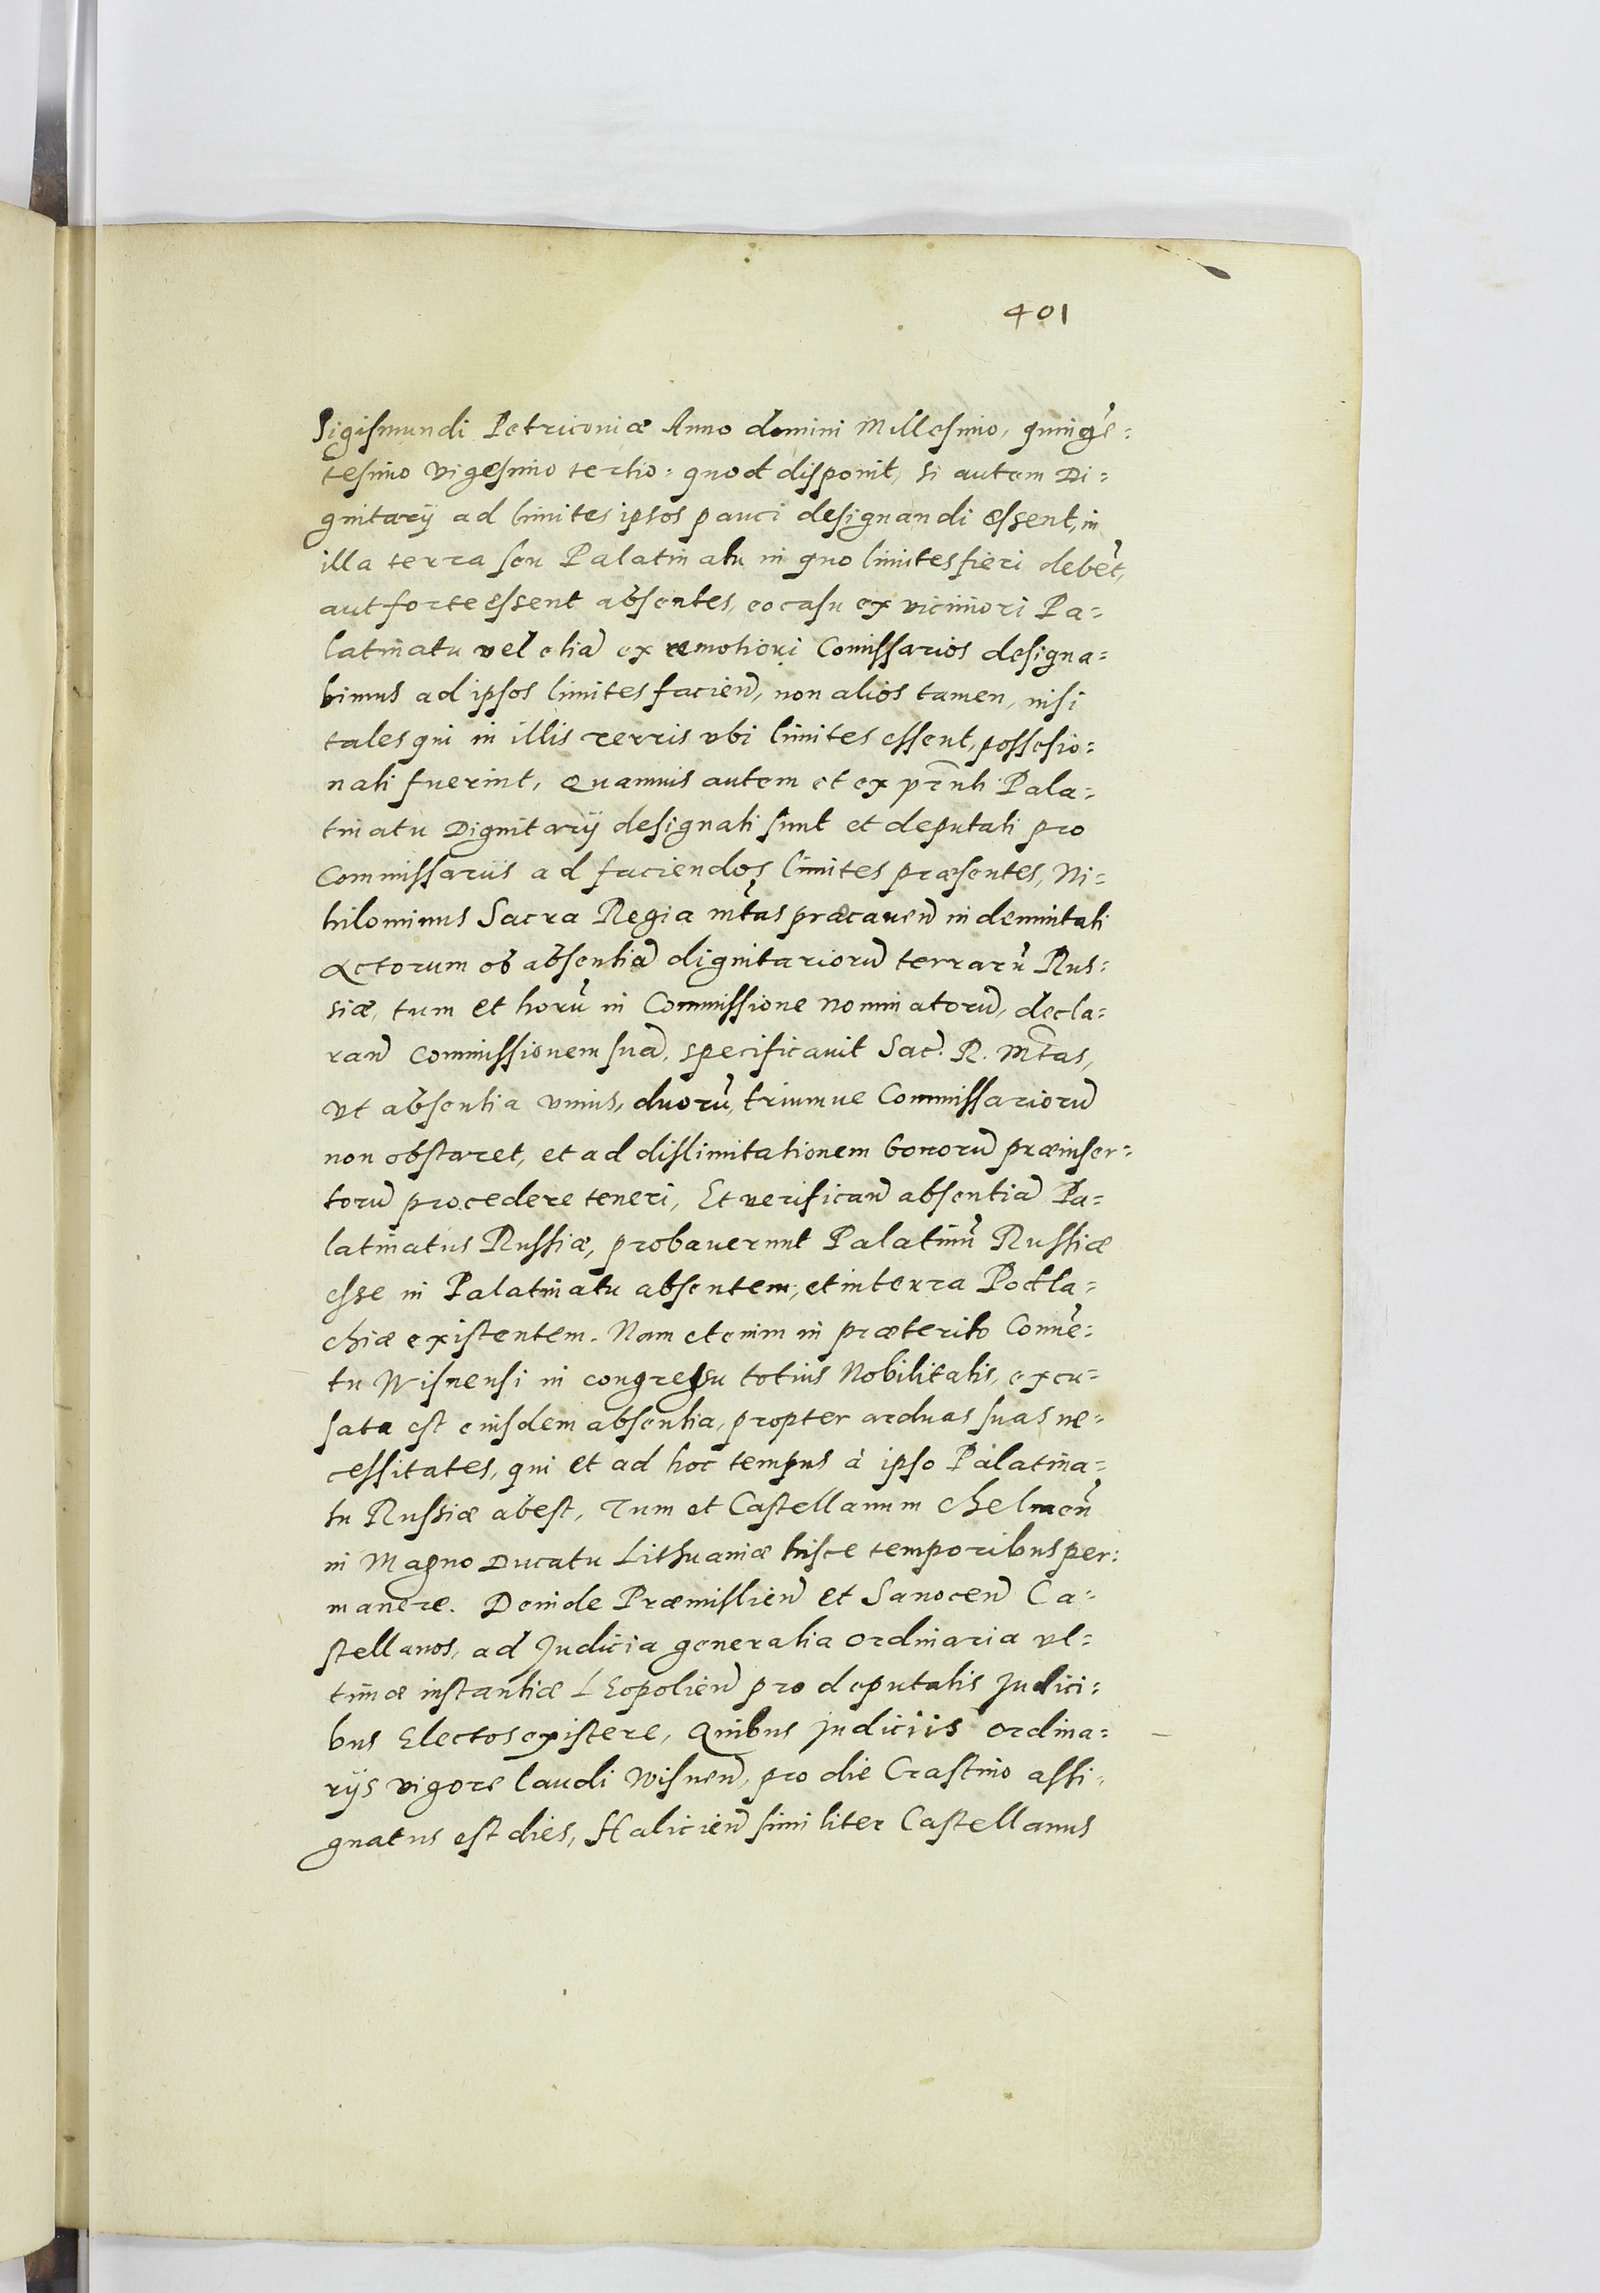 401
Sigismundi Petricouiæ Anno domini Millesimo, quingẽ=
tesimo vigesimo tertio: quod disponit, si autem Di=
gnitarÿ ad limites ipsos pauci designandi essent, in
illa terra seu Palatinatu in quo limites fieri debẽt,
aut forte essent absentes, eo casu ex viciniori Pa=
latinatu vel etiã ex remotiori Comissarios designa=
bimus ad ipsos limites facieñ, non alios tamen, nisi
tales qui in illis terris vbi limites essent, possesio=
nati fuerint, Quamuis autem et ex pr̃nti Pala=
tinatu Dignitarÿ designati sunt et deputati pro
Commissariis ad faciendos limites præsentes, Ni=
hilominus Sacra Regia mt̃as præcaueñ indemnitati
Actorum ob absentiã dignitariorũ terrarũ Rus=
siæ, tum et horũ in Commissione nominatorũ, decla=
rañ commissionem suã, specificauit Sac̃. R. Mt̃as,
vt absentia vnius, duorũ, triumue Commissariorũ
non obstaret, et ad dislimitationem bonorũ præinser=
torũ procedere teneri, Et verificañ absentiã Pa=
latinatus Russiæ, probauerunt Palatinũ Russiæ
esse in Palatinatu absentem, et in terra Podla=
chiæ existentem. Nam etenim in præterito Conuẽ=
tu Wisnensi in congressu totius Nobilitatis, excu=
sata est eiusdem absentia, propter arduas suas ne=
cessitates, qui et ad hoc tempus à ipso Palatina=
tu Russiæ abest, Tum et Castellanum Chelmeñ
in Magno Ducatu Lithuaniæ hisce temporibus per=
manere. Deinde Præmislieñ et Sanoceñ Ca=
stellanos, ad Judicia generalia ordinaria vl=
timæ instantiæ LEopolieñ pro deputatis Judici=
bus Electos existere, Quibus judiciis ordina=
rÿs vigore laudi Wisneñ, pro die Crastino assi=
gnatus est dies, Halicieñ similiter Castellanus